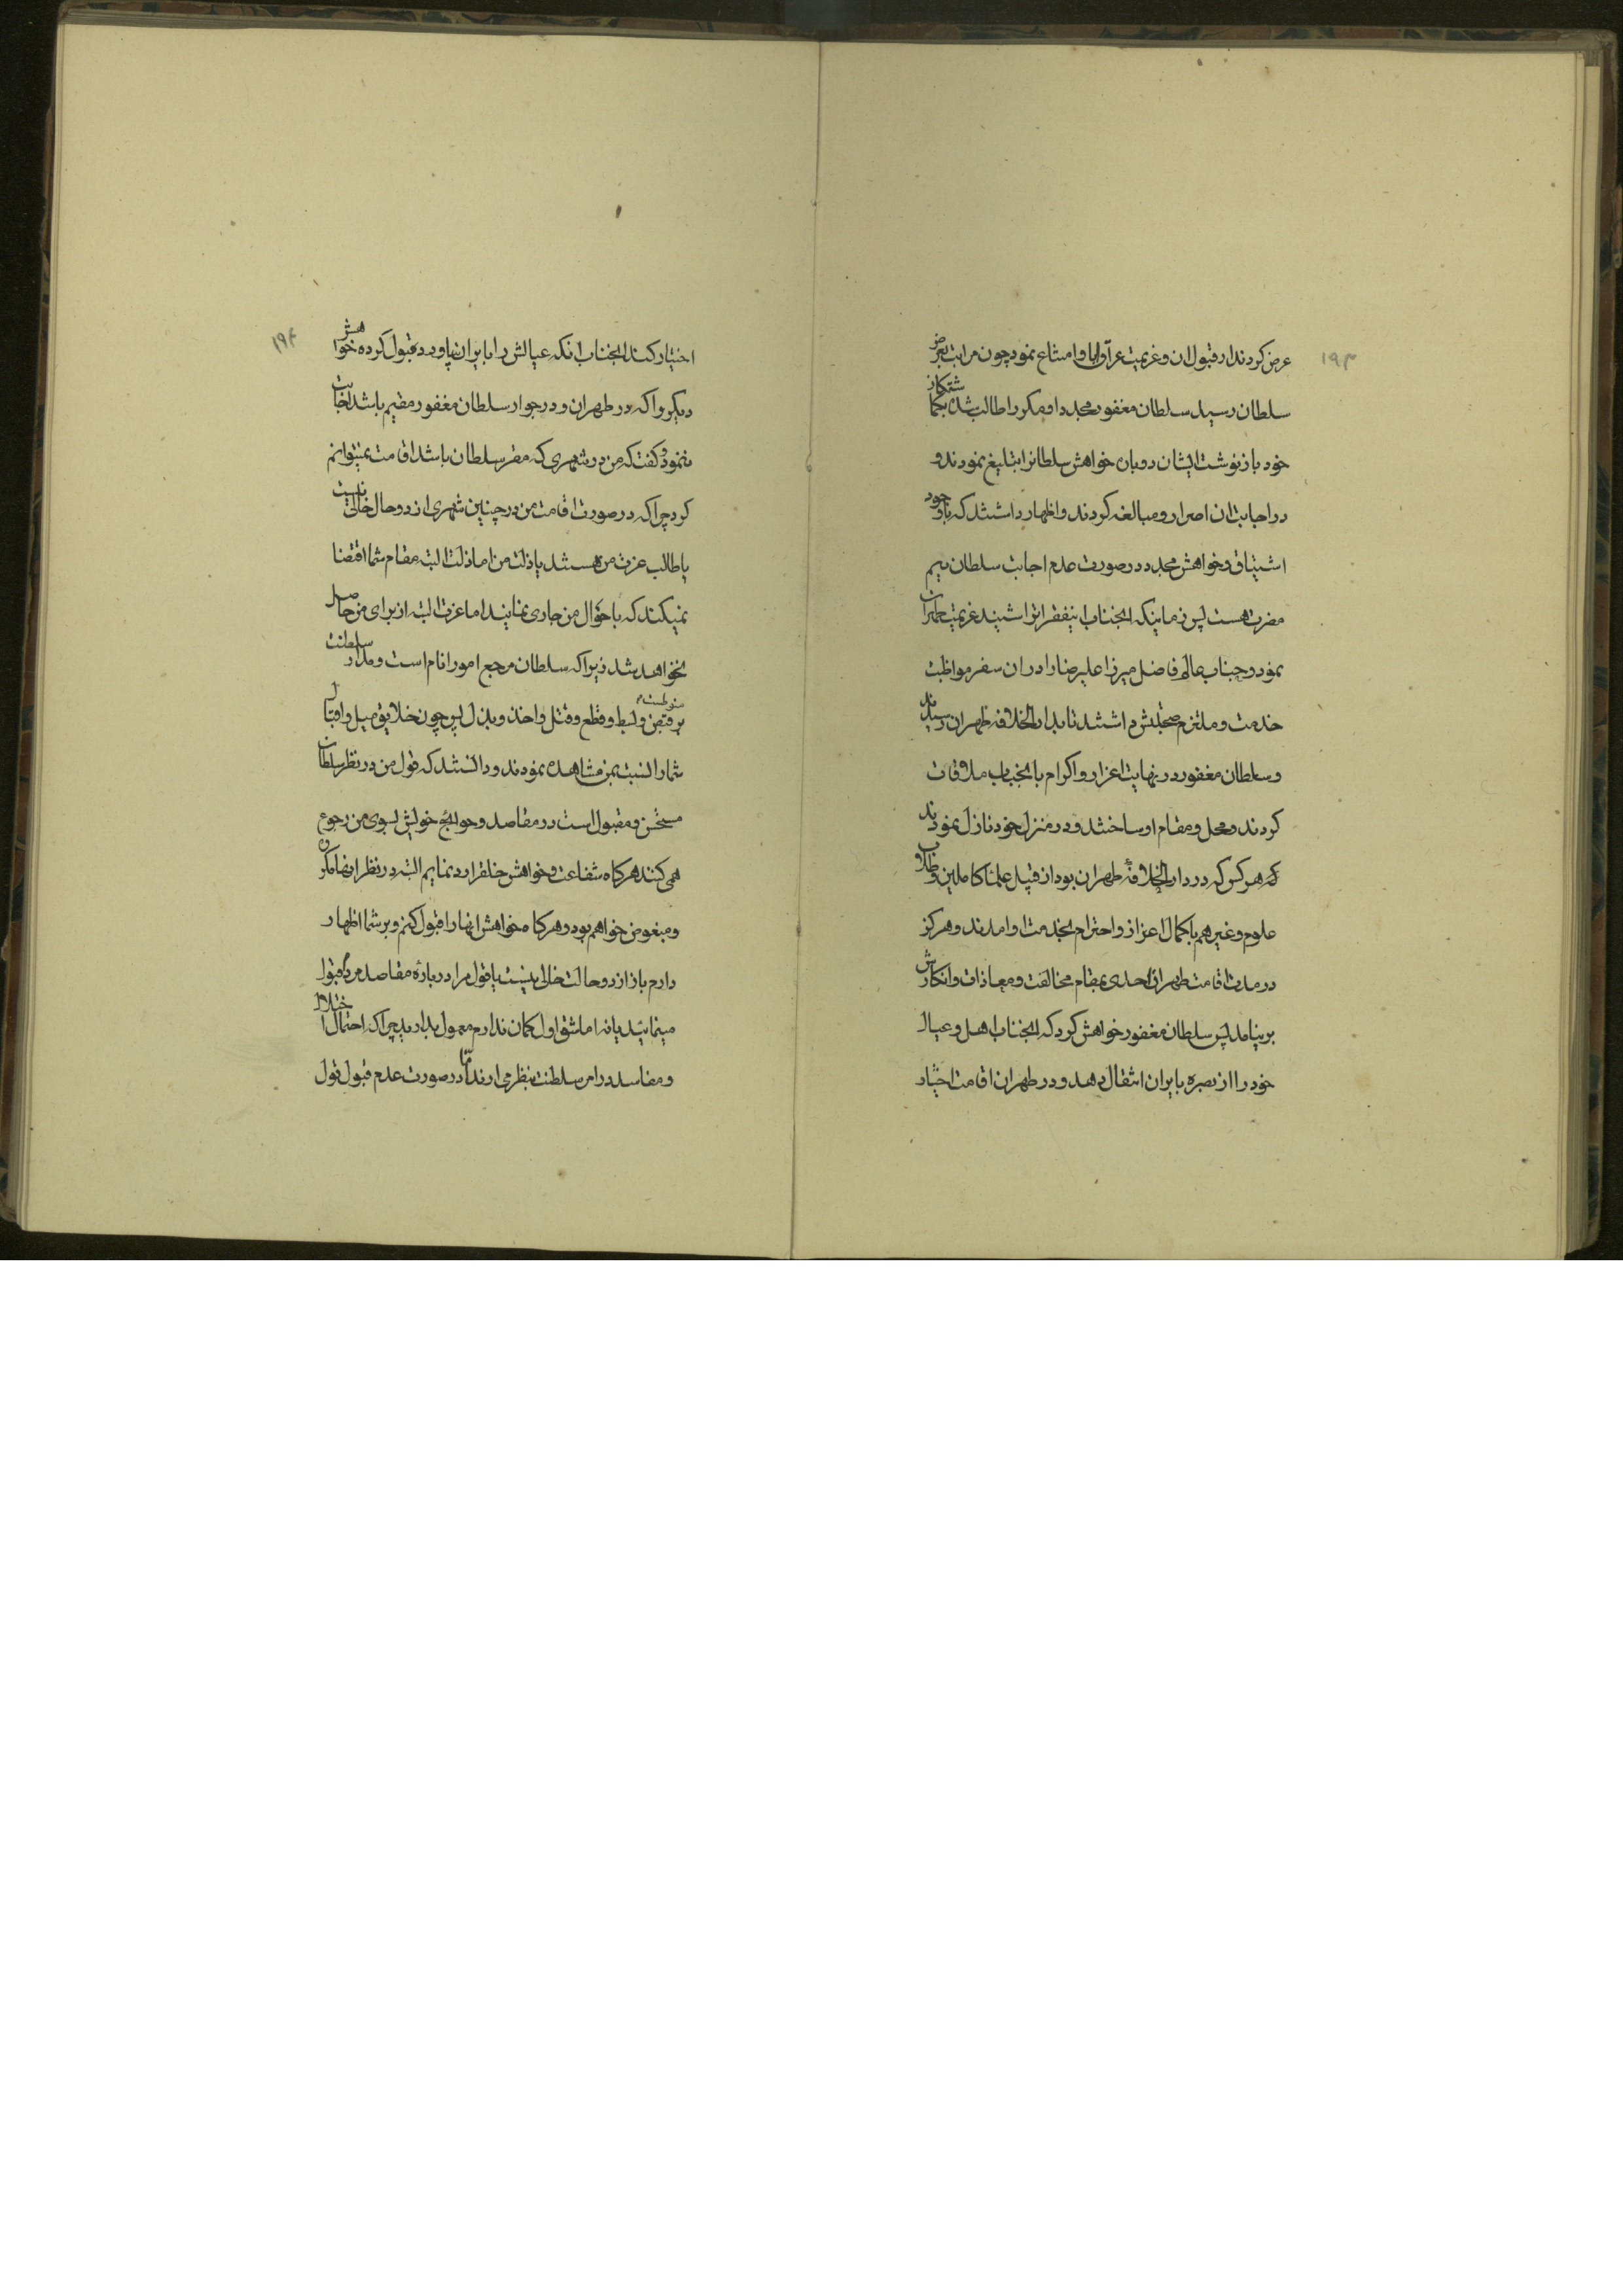 ۱۹۳
عرض کردند از قبول ان و عزیمت عرا و ابا و امتناع نمود چون مراتب بعرض
سلطان رسید سلطان مغفور مجددا و مکررا طالب شده بگماشتگان
خود باز نوشت ایشان دوباره خواهش سلطانرا تبلیغ نمودند و
در اجابت ان اصرار و مبالغه کردند و اظهار داشتند که با وجود
اشتیاق و خواهش مجدد در صورت عدم اجابت سلطان بیم
مضرت هست پس زمانیکه انجناب این فقراترا شنید عزیمت طهران
نمود و جناب عالم فاضل میرزا علیرضا را در ان سفر مواظبت
خدمت و ملتزم صحبتش داشتند تا بدار الخلافه طهران رسیدند
و سلطان مغفور در نهایت اعزاز و اکرام با انجناب ملاقات
کردند و محل و مقام او ساختند و در منزل خود نازل نمودند
که هر کس که در دار الخلافهٔ طهران بود از قبیل علماء کاملین و طلاب
علوم و غیرهم با کمال اعزاز و احترام بخدمت او امدند و هرکز
در مدت اقامت طهران احدی بمقام مخالفت و معاذات و انکارش
بر نیامد پس سلطان مغفور خواهش کرد که انجناب اهل و عیال
خود را از بصره بایران انتقال دهد و در طهران اقامت اختیار
۱۹۴
اختیار کند انجناب انکه عیالش را بایران بیاورد قبول کرده خواهش
دیکر را که در طهران و در جوار سلطان مغفور مقیم باشد اجابت
ننمود و کفت که من در شهری که مقر سلطان باشد اقامت نمیتوانم
کرد چرا که در صورت اقامت من در چنین شهری از دو حال خالی نیست
یا طالب عزت من هستند یا ذلت من اما ذلت البته مقام شما اقتضا
نمیکند که باحوال من جاری نمایند اما عزت البته از برای من حاصل
نخواهد شد زیرا که سلطان مرجع امور انام است و مدار سلطنت
منوطست بر قبض و بسط و قطع و قتل و اخذ و بذل پس چون خلایق میل و اقبال
شما را نسبت بمن مشاهده نمودند و دانستند که قول من در نظر سلطان
مستحسن و مقبول است در مقاصد و حوائج خویش بسوی من رجوع
همی کنند هر کاه شفاعت و خواهش خلقرا رد نمایم البته در نظر انها مکروه
و مبغوض خواهم بود و هر کاه خواهش انها را قبول کنم و بر شما اظهار
دارم باز از دو حالت خالی نیست یا قول مرا در بارهٔ مقاصد مردم قبول
مینمائید یا نه اما شق اول کمان ندارم معمول بدارید چرا که احتمال اختلال
و مفاسد در امر سلطنت بنظر می اورند اما در صورت عدم قبول قول